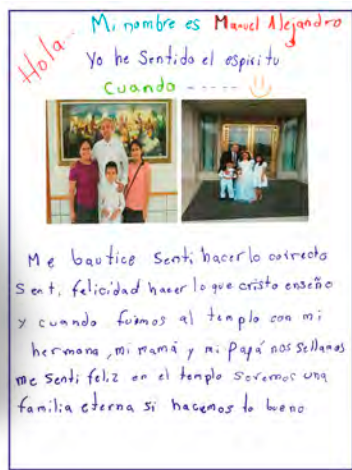 Hola...
Mi nombre es Manuel Alejandro
Yo he Sentido el espiritu
Cuando - - - - -
Me bautice Senti hacer lo coirecto
Senti felicidad hacer lo que cristo enseño
y cuando fuimos al templo con mi
hermana, mi mamá y mi papá nos sellamos
me senti feliz en el templo Soremos una
familia eterna si hacemos lo bueno